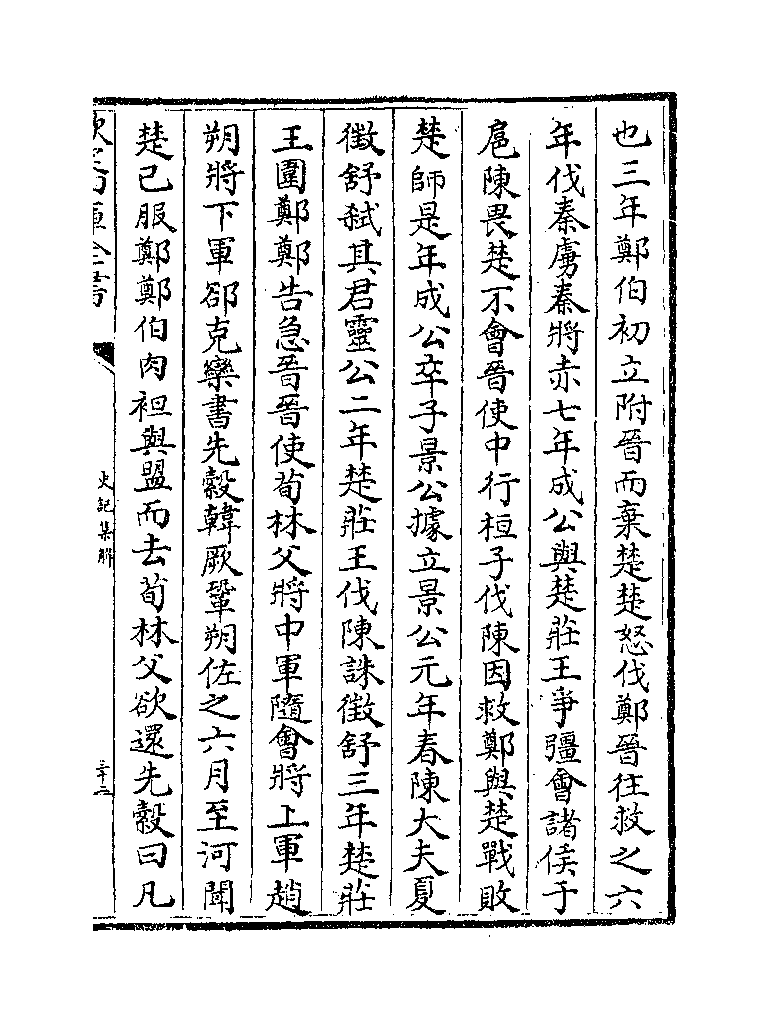 也三年鄭伯初立附晉而棄楚楚怒伐鄭晉往救之六
年伐秦虜秦將赤七年成公與楚莊王爭彊會諸侯于
扈陳畏楚不會晉使中行桓子伐陳因救鄭與楚戰敗
楚師是年成公卒子景公據立景公元年春陳大夫夏
徵舒弑其君靈公二年楚莊王伐陳誅徵舒三年楚莊
王圍鄭鄭告急晉晉使荀林父將中軍隨會將上軍趙
朔將下軍郤克欒書先縠韓厥鞏朔佐之六月至河聞
楚已服鄭鄭伯肉袒與盟而去荀林父欲還先縠曰凡
欽定四庫全書
史記集解
三十二